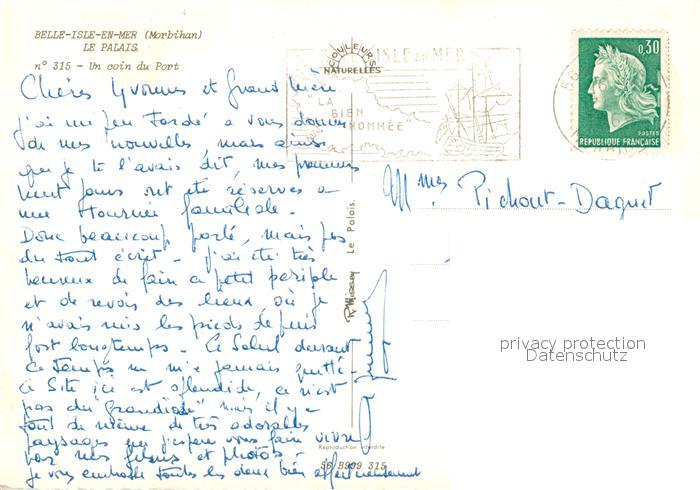 BELLE-ISLE-EN-MER (Morbihan)
LE PALAIS
n° 315 - Un coin du Port
COULEURS
NATURELLES
ISLE EN MER
"LA
BIEN
NOMMÉE"
0,30
POSTES
REPUBLIQUE FRANÇAISE
Chères Yvonne et Grand'Mère
j'ai un peu tardé à vous donner
de mes nouvelles, mais ainsi
que je te l'avais dit, mes premiers
vingt jours ont été réservés à
une tournée familiale.
Donc beaucoup parlé, mais pas
du tout écrit - j'ai été très
heureux de faire ce petit périple
et de revoir des lieux où je
n'avais mis les pieds depuis
fort longtemps - Ce Soleil durant
ce temps ne m'a jamais quitté -
Ce Site ici est splendide, ce n'est
pas du "Grandiose" mais il y a
tout de même de très adorables
paysages que j'espère vous faire vivre
par mes films et photos -
je vous embrasse toutes les deux bien affectueusement
Mmes Pichout-Daguet
Le Palais.
Reproduction interdite
56 B999 315
privacy protection
Datenschutz